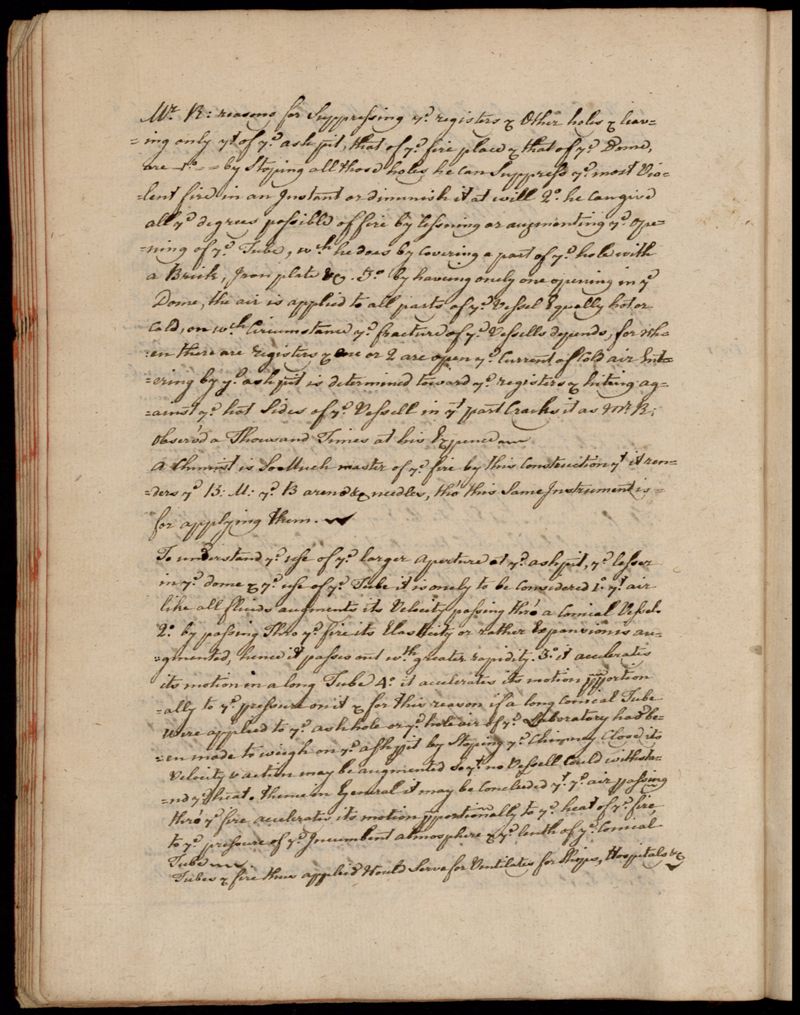 Mr. R: reasons for Suppressing ye. registers & Other holes & leav=
=ing only yt of ye. ash pit, that of ye. fire place & that of ye. Dome,
are 1o. by Stoping all those holes he can Suppress ye. most Vio=
=lent fire in an Instant or diminish it at will 2o. he can give
all ye. degrees possible of fire by lessning or augmenting ye. ope=
=ning of ye. Tube, wch. he does by Covering a part of ye. hole with
a Brick, Iron plate &c. 3o. by having onely one opening in ye
Dome, the air is applied to all parts of ye. Vessel Equally hot or
Cold, on wch. Circumstance ye. fracture of ye. Vessells depends, for wh=
=en there are registers & one or 2 are open ye. Current of Cold air Ent=
=ering by ye. ash pit is determined toward ye. registers & hiting ag=
=ainst ye. hot Sides of ye. Vessell in yt part Cracks it as Mr R:
observ'd a Thousand Times at his Expence
A Chimist is So Much master of ye. fire by this Construction yt. it ren=
=ders ye. B: M: ye. B arenæ &c needles, tho' this Same Instrument is
for applying them.
To understand ye. use of ye. larger aperture at ye. ash pit, ye. lesser
in ye. dome & ye. use of ye. Tube it is onely to be Considered 1o. yt. air
like all fluids augments its Velocity passing thro' a Conical Vessel
2o. by passing Thro ye. fire its Elasticity or rather Expansion is au=
=gmented, hence it passes out wth. greater rapidity. 3o. it accelerates
its motion in a long Tube 4o. it acelerates its motion pportion
=ally to ye. pressure on it & for this reason if a long Conical Tube
were applied to ye. ash hole or ye. hole air of ye. Laboratory had be=
=en made to weigh on ye. ash pit by Stoping ye. Chimney Close its
Velocity & action may be augmented so yt. no Vessell Could withsta=
=nd ye heat. thence in General it may be Concluded yt. ye. air passing
thro' ye. fire acelerates its motion pportionally to ye. heat of ye. fire
to ye. pressure of ye. Incumbent atmosphere & ye. lenth of ye. Conical
Tube.
Tubes & fire thus applied Would Serve for Ventilates for Ships, Hospitals &c